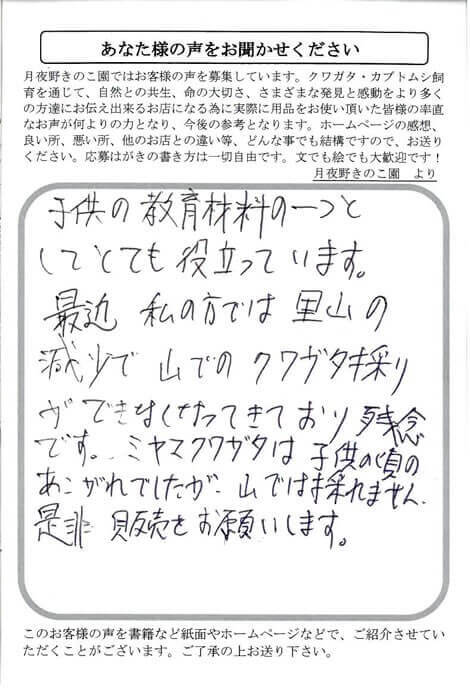 あなた様の声をお聞かせください
月夜野きのこ園ではお客様の声を募集しています。クワガタ・カブトムシ飼
育を通じて、自然との共生、命の大切さ、さまざまな発見と感動をより多く
の方達にお伝え出来るお店になる為に実際に用品をお使い頂いた皆様の率直
なお声が何よりの力となり、今後の参考となります。ホームページの感想、
良い所、悪い所、他のお店との違い等、どんな事でも結構ですので、お送り
ください。応募はがきの書き方は一切自由です。文でも絵でも大歓迎です！
月夜野きのこ園　より
子供の教育材料の一つと
してとても役立っています。
最近　私の方では里山の
減少で山でのクワガタ採り
ができなくなってきており残念
です。ミヤマクワガタは子供の頃の
あこがれでしたが、山では採れません。
是非販売をお願いします。
このお客様の声を書籍など紙面やホームページなどで、ご紹介させてい
ただくことがございます。ご了承の上お送り下さい。